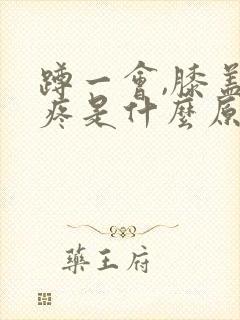 蹲一會,膝蓋
疼是什麼原
藥王府